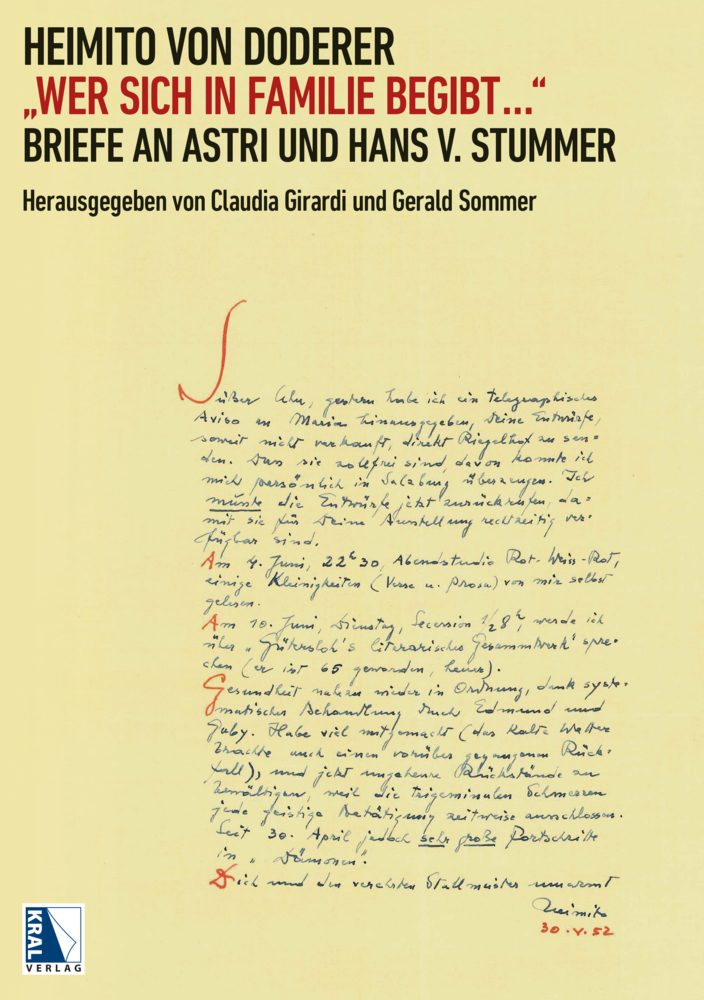 HEIMITO VON DODERER
„WER SICH IN FAMILIE BEGIBT…“
BRIEFE AN ASTRI UND HANS V. STUMMER
Herausgegeben von Claudia Girardi und Gerald Sommer
Süßer, gestern habe ich ein telegraphisches
Aviso an Maria hinausgegeben, Deine Entwürfe,
soweit nicht verkauft, direkt Riegelhof zu sen=
den. Dass sie zollfrei sind, davon konnte ich
mich persönlich in Salzburg überzeugen. Ich
musste die Entwürfe jetzt zurückrufen, da=
mit sie für Deine Ausstellung rechtzeitig ver=
fügbar sind.
Am 4. Juni, 22h 30, Abendstudio Rot-Weiss-Rot,
einige Kleinigkeiten (Verse u. Prosa) von mir selbst
gelesen.
Am 10. Juni, Dienstag, Secession 1/2 8h, werde ich
über „Gütersloh's literarisches Gesammtwerk" spre=
chen (er ist 65 geworden, heuer).
Gesundheit nahezu wieder in Ordnung, dank syste=
matischer Behandlung durch Edmund und
Gaby. Habe viel mitgemacht (das kalte Wetter
brachte auch einen vorüber gegangenen Rück=
fall), und jetzt ungeheure Rückstände zu
bewältigen, weil die trigeminalen Schmerzen
jede geistige Betätigung zeitweise ausschlossen.
Seit 30. April jedoch sehr große Fortschritte
in „Dämonen".
Dich und den verehrten Stallmeister umarmt
Heimito
30.V.52
KRAL
VERLAG